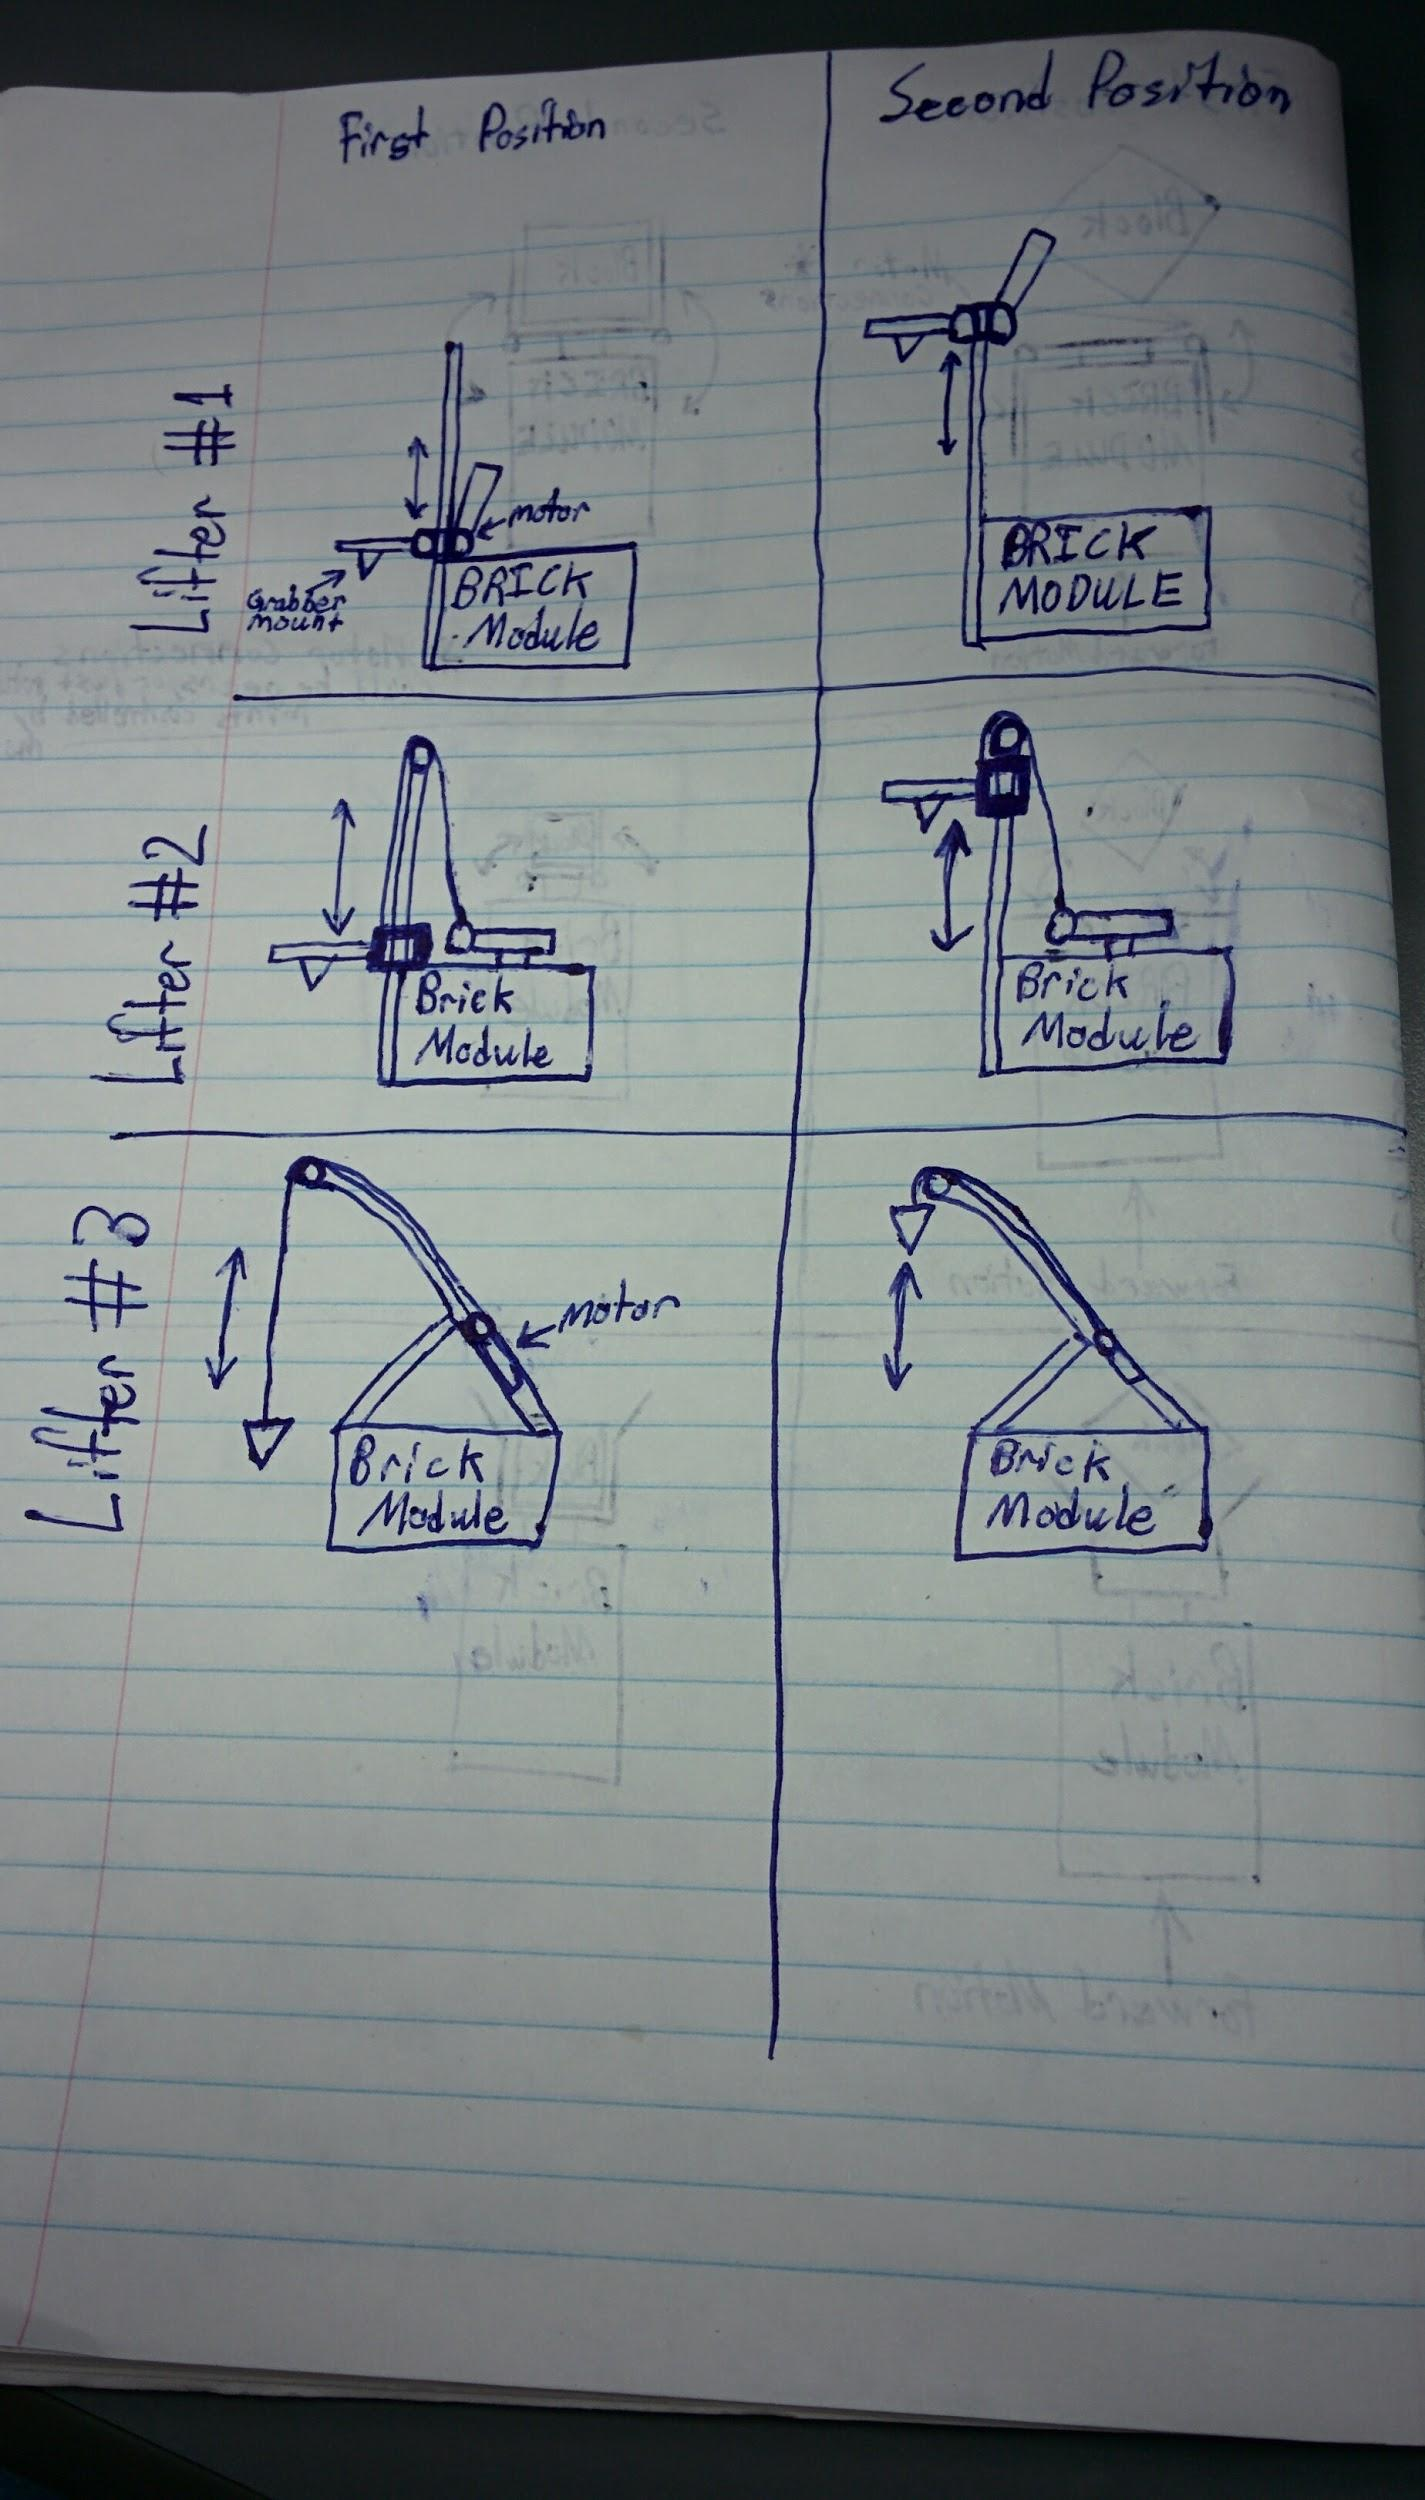 First Position
Second Position
Lifter #1
motor
Grabber
mount
BRICK
Module
BRICK
MODULE
Lifter #2
Brick
Module
Brick
Module
Lifter #3
motor
Brick
Module
Brick
Module